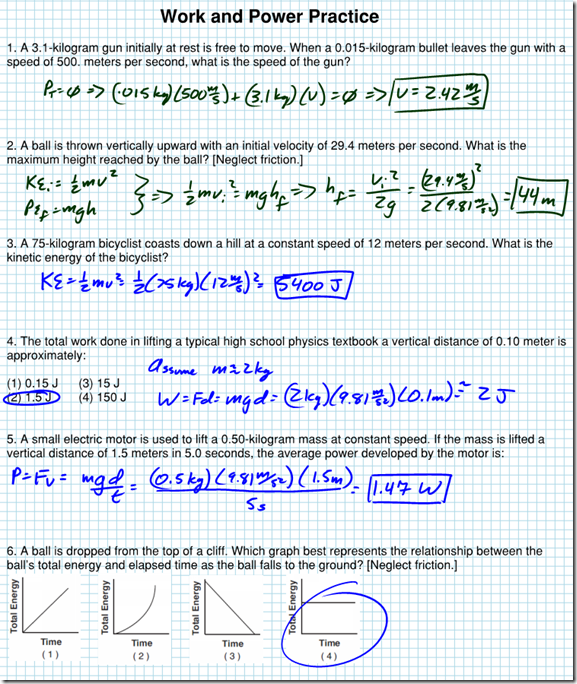 Work and Power Practice
1. A 3.1-kilogram gun initially at rest is free to move. When a 0.015-kilogram bullet leaves the gun with a
speed of 500. meters per second, what is the speed of the gun?
P_T=φ => (.015kg)(500 m/s)+(3.1kg)(v)=φ => v=2.42 m/s
2. A ball is thrown vertically upward with an initial velocity of 29.4 meters per second. What is the
maximum height reached by the ball? [Neglect friction.]
KE_i = ½mv²
PE_f = mgh
} => ½mv_i² = mgh_f => h_f = v_i²/2g = (29.4 m/s)²/2(9.81 m/s²) = 44m
3. A 75-kilogram bicyclist coasts down a hill at a constant speed of 12 meters per second. What is the
kinetic energy of the bicyclist?
KE = ½mv² = ½(75kg)(12 m/s)² = 5400 J
4. The total work done in lifting a typical high school physics textbook a vertical distance of 0.10 meter is
approximately:
assume m≈2kg
(1) 0.15 J (3) 15 J
(2) 1.5 J (4) 150 J
W = Fd = mgd = (2kg)(9.81 m/s²)(0.1m) ≈ 2 J
5. A small electric motor is used to lift a 0.50-kilogram mass at constant speed. If the mass is lifted a
vertical distance of 1.5 meters in 5.0 seconds, the average power developed by the motor is:
P = Fv = mgd/t = (0.5kg)(9.81 m/s²)(1.5m)/5s = 1.47 W
6. A ball is dropped from the top of a cliff. Which graph best represents the relationship between the
ball's total energy and elapsed time as the ball falls to the ground? [Neglect friction.]
Total Energy Total Energy Total Energy Total Energy
Time Time Time Time
(1) (2) (3) (4)